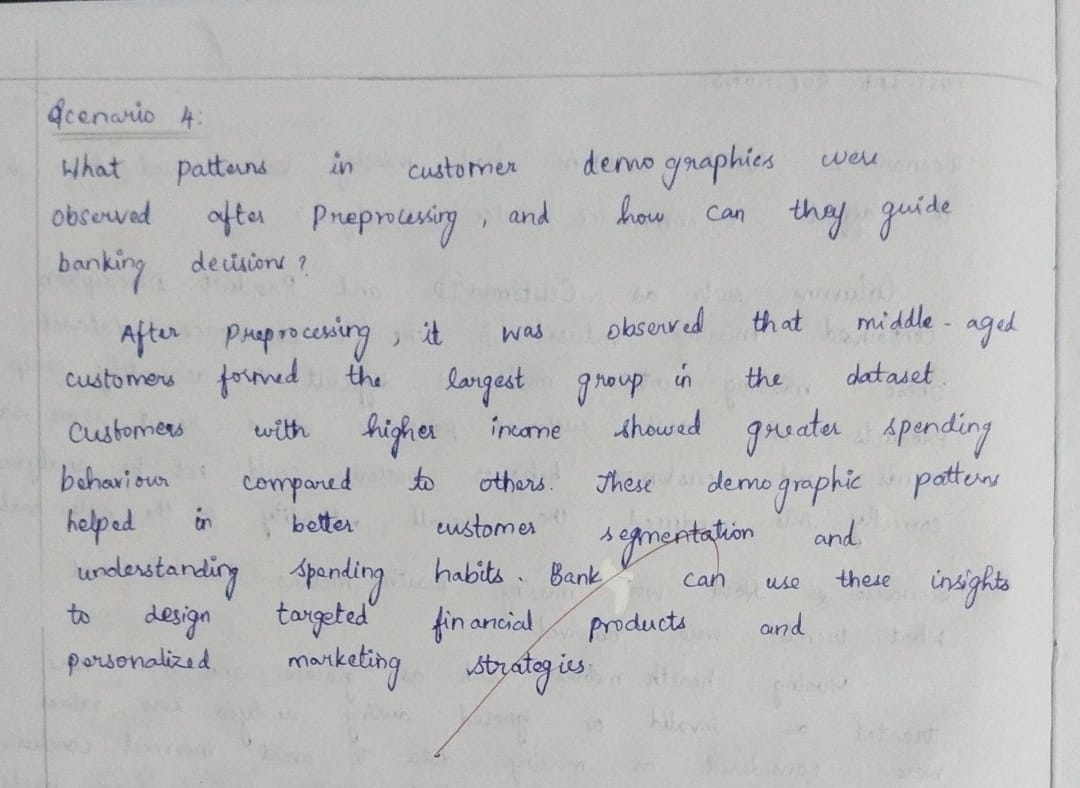 Scenario 4:
What patterns in customer demographics were
observed after Preprocessing, and how can they guide
banking decisions?
After preprocessing, it was observed that middle-aged
customers formed the largest group in the dataset.
Customers with higher income showed greater spending
behaviour compared to others. These demographic patterns
helped in better customer segmentation and
understanding spending habits. Bank can use these insights
to design targeted financial products and
personalized marketing strategies.